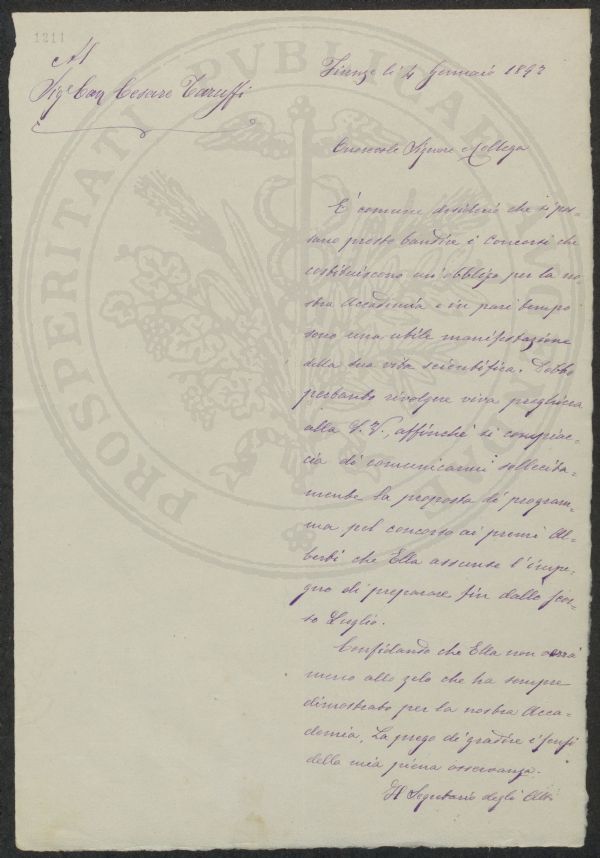 1211
Al
Sigr Cav Cesare Taruffi
Firenze li 4 Gennaio 1893
Onorevole Signore e Collega
È comune desiderio che si pos-
sano presto bandire i concorsi che
costituiscono un'obbligo per la no-
stra Accademia e in pari tempo
sono una utile manifestazione
della sua vita scientifica. Debbo
pertanto rivolgere viva preghiera
alla S. V., affinchè si compiac-
cia di comunicarmi sollecita-
mente la proposta di program-
ma pel concorso ai premi Al-
berti che Ella assunse l'impe-
gno di preparare fin dallo scor-
so Luglio.
Confidando che Ella non verrà
meno allo zelo che ha sempre
dimostrato per la nostra Acca-
demia, La prego di gradire i sensi
della mia piena osservanza.
Il Segretario degli Atti
PROSPERITATI PUBLICAE